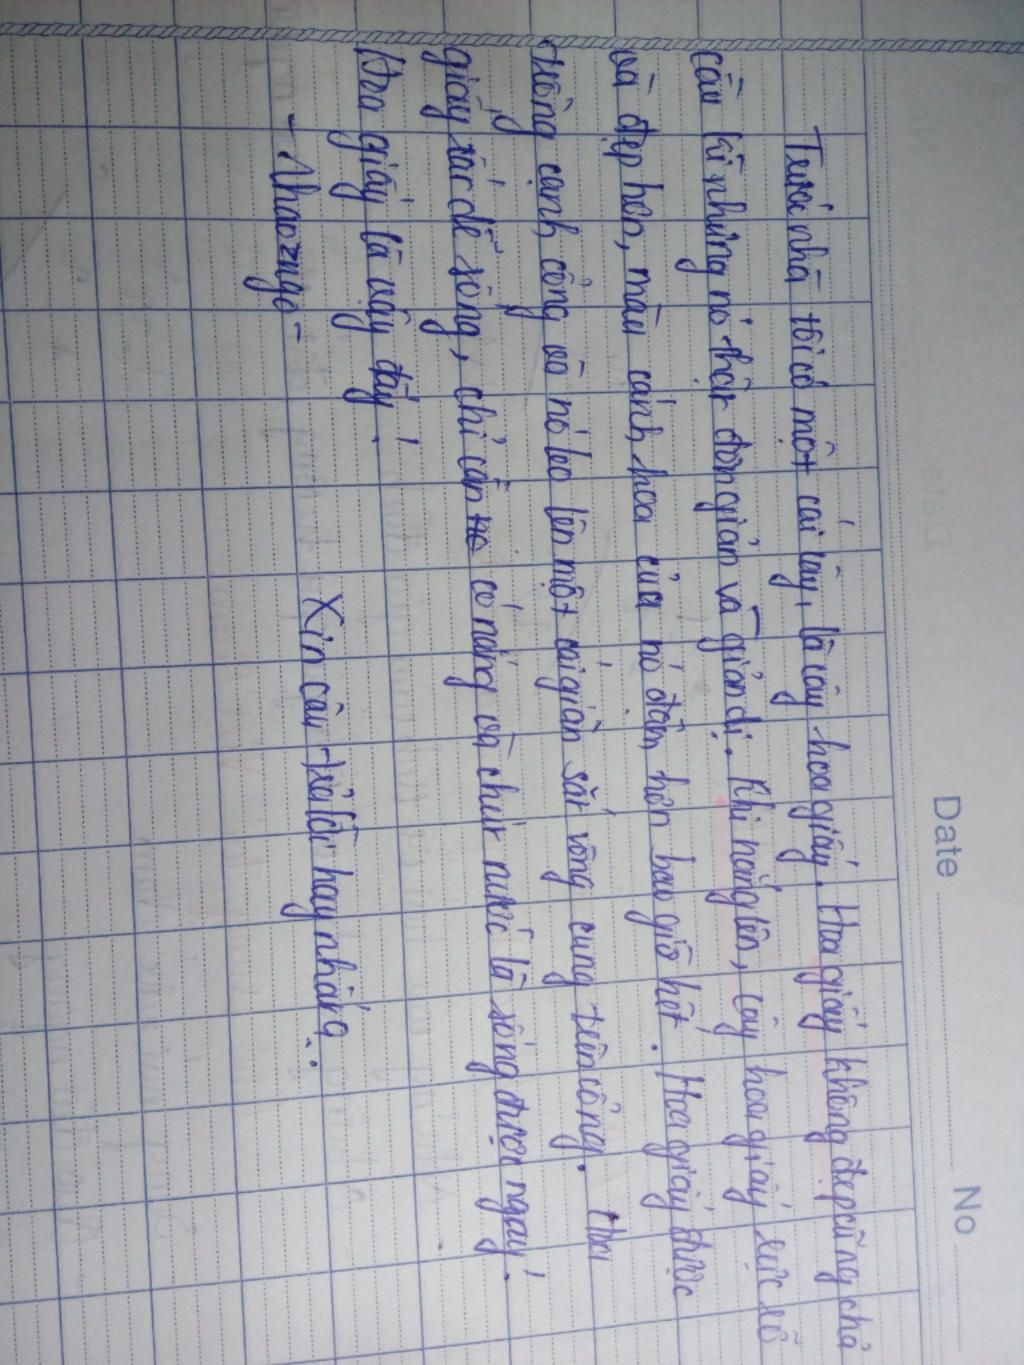 Date No
Trước nhà tôi có một cái cây, là cây hoa giấy. Hoa giấy không đẹp cũng chả
cầu kì nhưng nó thật đơn giản và giản dị. Khi nắng lên, cây hoa giấy rực rỡ
và đẹp hơn, màu cánh hoa của nó đậm hơn bao giờ hết. Hoa giấy được
trồng cạnh cổng và nó leo lên một cái giàn sắt vòng cung trên cổng. Hoa
giấy rất dễ sống, chỉ cần có nắng và chút nước là sống được ngay!
Hoa giấy là vậy đấy!
- Nhaongo -
Xin câu trả lời hay nhất ạ..